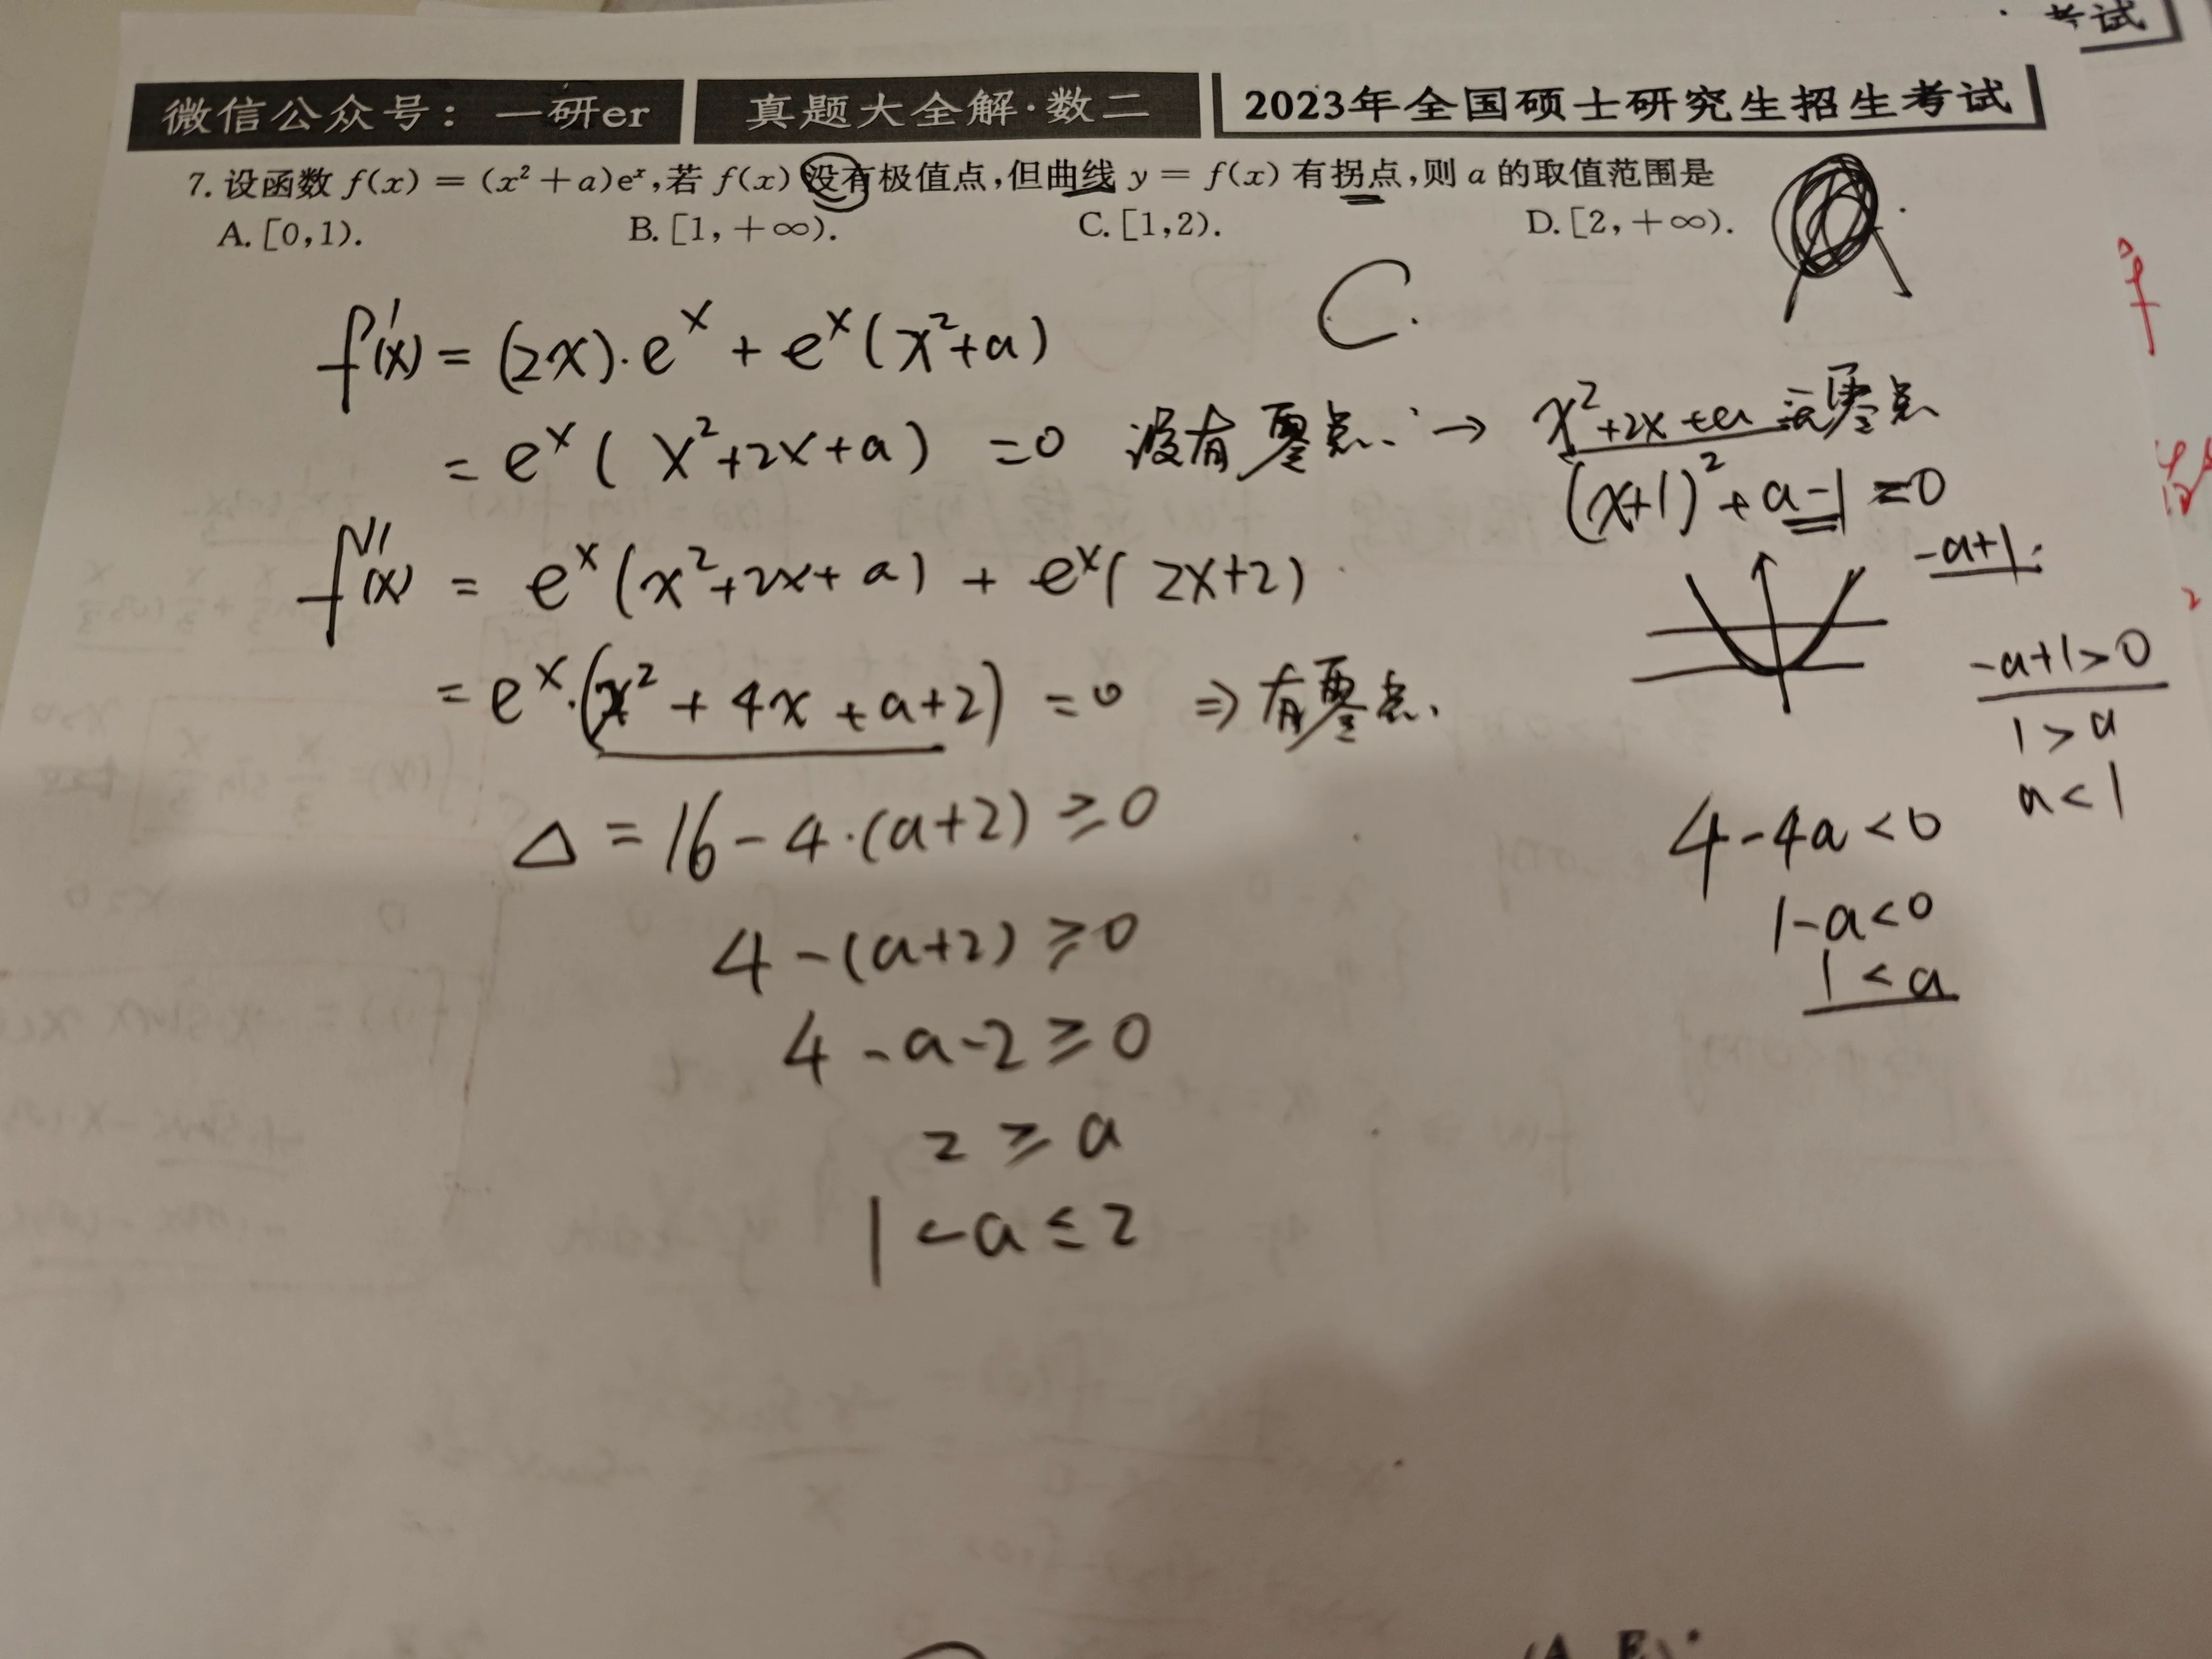 考试
微信公众号：一研er 真题大全解·数二 2023年全国硕士研究生招生考试
7. 设函数 f(x) = (x² + a)eˣ,若 f(x) 没有极值点,但曲线 y = f(x) 有拐点,则 a 的取值范围是
A. [0,1). B. [1, +∞). C. [1,2). D. [2, +∞).
C.
f'(x) = (2x)·eˣ + eˣ(x²+a)
= eˣ( x²+2x+a ) =0 没有零点. → x²+2x+a 无零点
(x+1)²+a-1=0
-a+1
f''(x) = eˣ(x²+2x+a) + eˣ( 2x+2)
-a+1>0
= eˣ·(x² + 4x + a+2) = 0 ⇒ 有零点.
1>a
a<1
Δ = 16-4·(a+2) ≥0
4-4a<0
4-(a+2) ≥0
1-a<0
1<a
4-a-2≥0
2≥a
1<a≤2